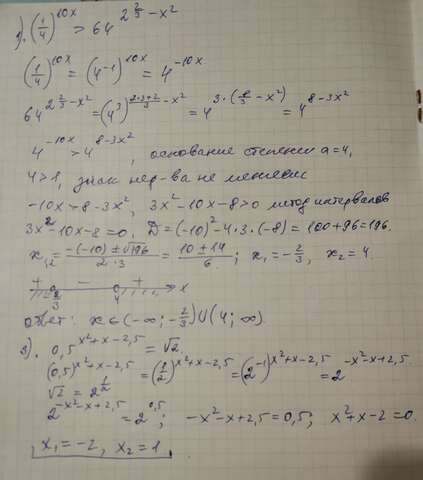 1). (1/4)^10x > 64^(2 2/3 − x²)
(1/4)^10x = (4^−1)^10x = 4^−10x
64^(2 2/3 − x²) = (4³)^((2·3+2)/3 − x²) = 4^(3·(8/3 − x²)) = 4^(8−3x²)
4^−10x > 4^(8−3x²), основание степени a=4,
4>1, знак нер-ва не меняем
−10x > 8−3x², 3x²−10x−8>0 метод интервалов
3x²−10x−8=0. D=(−10)²−4·3·(−8)=100+96=196.
x₁,₂ = (−(−10) ± √196)/(2·3) = (10±14)/6; x₁=−2/3, x₂=4.
+ − +
−2/3 4 x
ответ: x ∈ (−∞; −2/3) ∪ (4; ∞).
2). 0,5^(x²+x−2,5) = √2.
(0,5)^(x²+x−2,5) = (1/2)^(x²+x−2,5) = (2^−1)^(x²+x−2,5) = 2^(−x²−x+2,5)
√2 = 2^(1/2)
2^(−x²−x+2,5) = 2^0,5; −x²−x+2,5=0,5; x²+x−2=0.
x₁=−2, x₂=1.